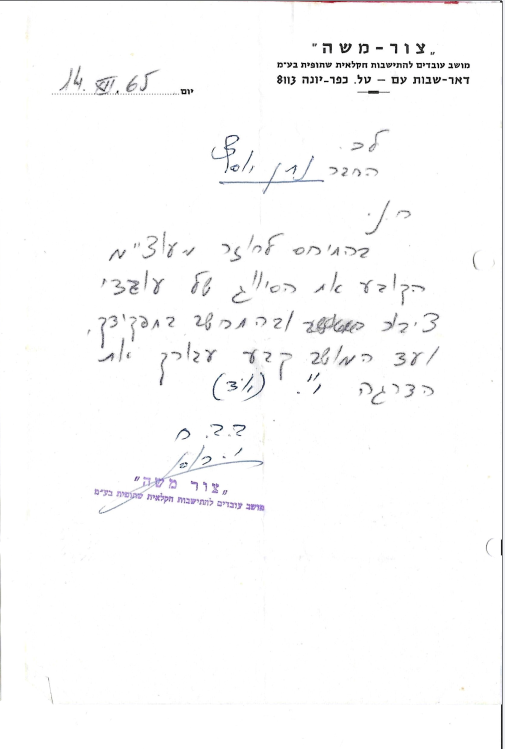 „צור-משה"
מושב עובדים להתישבות חקלאית שתופית בע"מ
דאר-שבות עם – טל. כפר-יונה 8113
יום 14.XII.65
לכ.
החבר נתן יוסף
ח.נ.
בהתיחס לחוזר מעוצ"מ
הקובע את הסיווג של עובדי
ציבור ובהתחשב בתפקידך,
ועד המושב קבע עבורך את
הדרגה י"ד.
ב.ב.ח
„צור משה"
מושב עובדים להתישבות חקלאית שתופית בע"מ